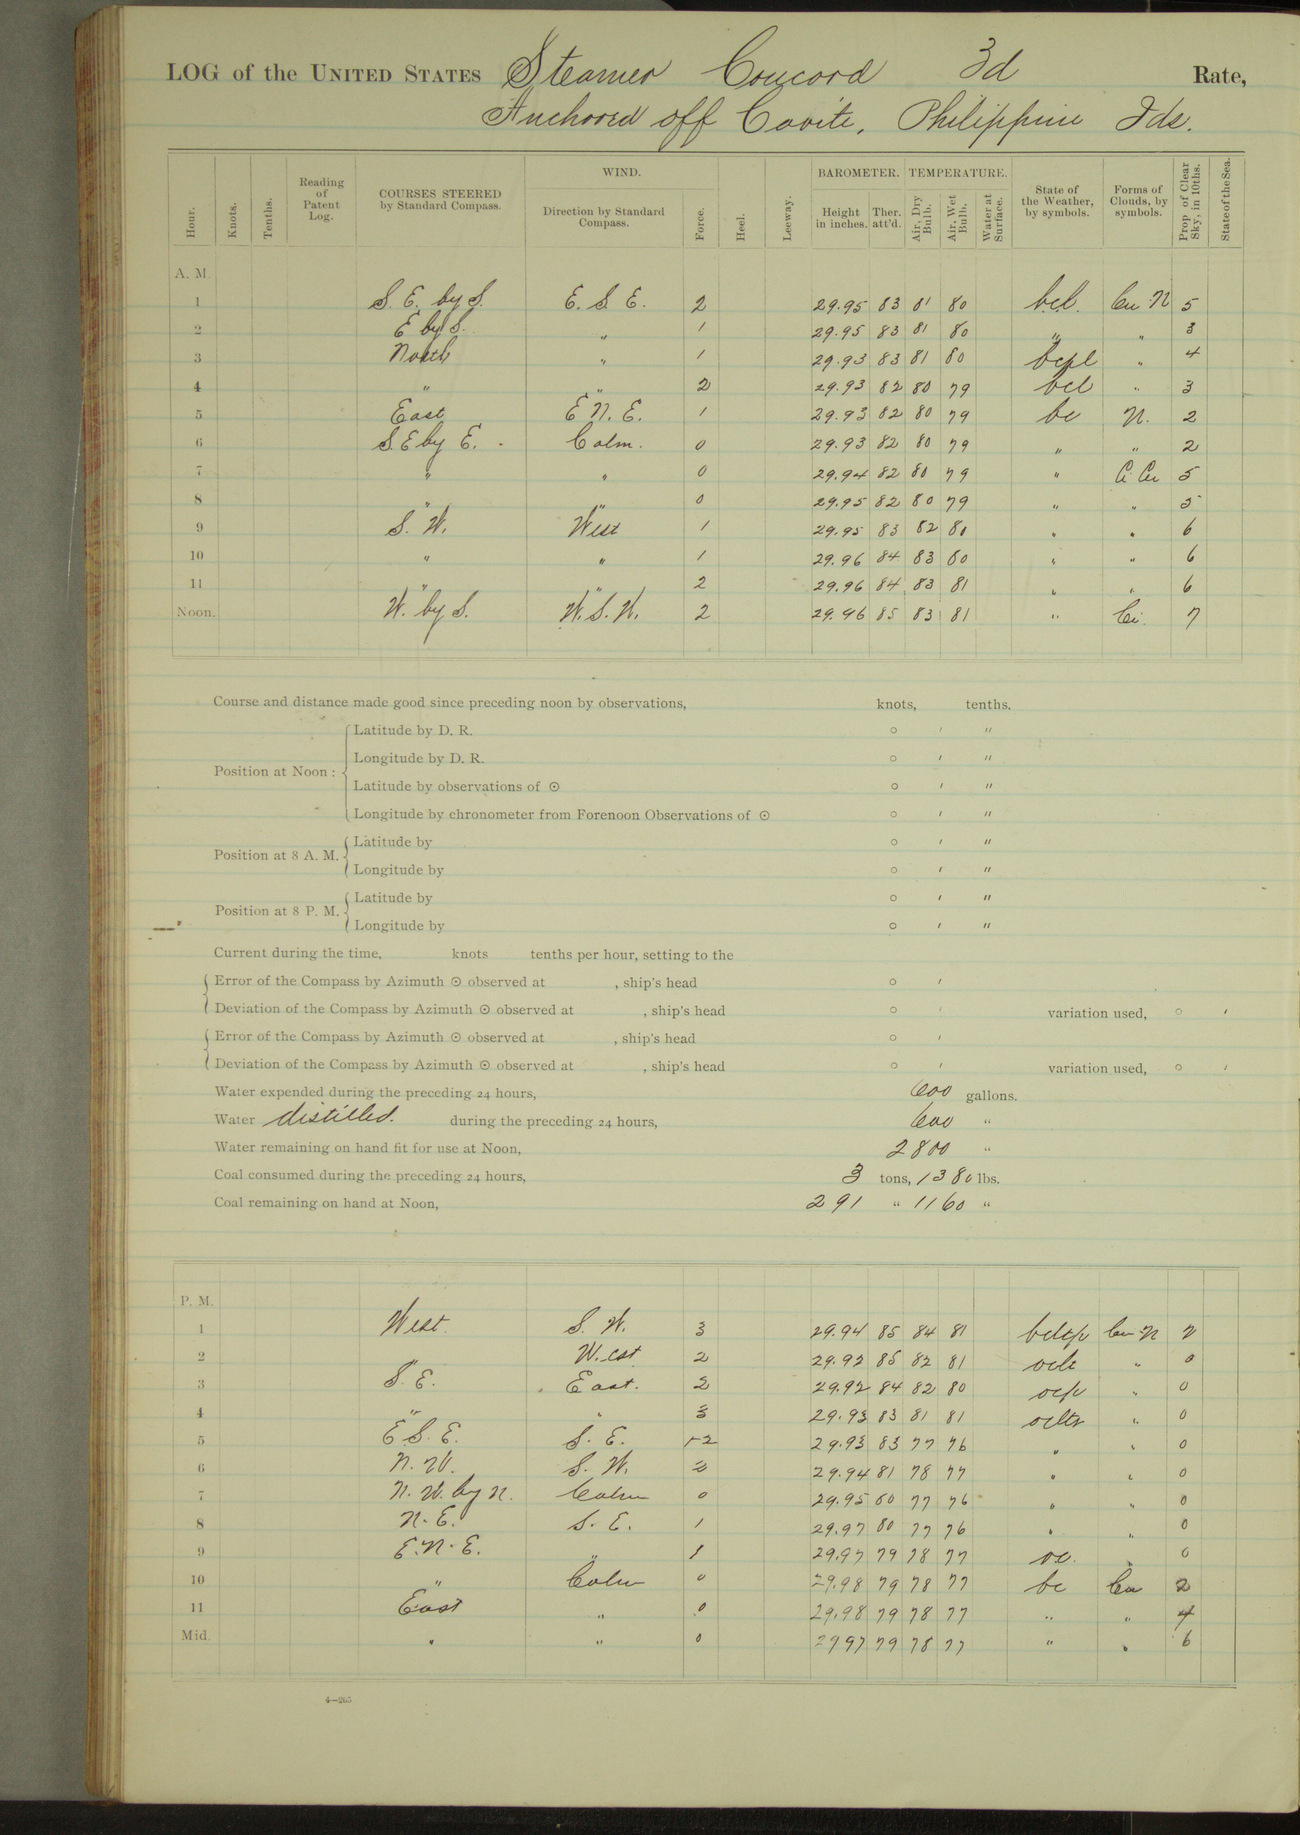 LOG of the UNITED STATES Steamer Concord 3d Rate,
Anchored off Cavite, Philippine Ids.
Hour. Knots. Tenths. Reading of Patent Log. COURSES STEERED by Standard Compass. WIND. Direction by Standard Compass. Force. Heel. Leeway. BAROMETER. Height in inches. Ther. att'd. TEMPERATURE. Air, Dry Bulb. Air, Wet Bulb. Water at Surface. State of the Weather, by symbols. Forms of Clouds, by symbols. Prop of Clear Sky, in 10ths. State of the Sea.
A. M.
1 S. E. by S. E. S. E. 2 29.95 83 81 80 bcl. Cu N 5
2 E by S. " 1 29.95 83 81 80 " " 3
3 North " 1 29.93 83 81 80 bcpl " 4
4 " " 2 29.93 82 80 79 bcl " 3
5 East E N. E. 1 29.93 82 80 79 bc N. 2
6 S. E by E. Calm. 0 29.93 82 80 79 " " 2
7 " " 0 29.94 82 80 79 " Ci Cu 5
8 " " 0 29.95 82 80 79 " " 5
9 S. W. West 1 29.95 83 82 80 " " 6
10 " " 1 29.96 84 83 80 " " 6
11 " " 2 29.96 84 83 81 " " 6
Noon. W. by S. W. S. W. 2 29.96 85 83 81 " Ci. 7
Course and distance made good since preceding noon by observations, knots, tenths.
Position at Noon :
Latitude by D. R. ° ′ ″
Longitude by D. R. ° ′ ″
Latitude by observations of ⊙ ° ′ ″
Longitude by chronometer from Forenoon Observations of ⊙ ° ′ ″
Position at 8 A. M.
Latitude by ° ′ ″
Longitude by ° ′ ″
Position at 8 P. M.
Latitude by ° ′ ″
Longitude by ° ′ ″
Current during the time, knots tenths per hour, setting to the
Error of the Compass by Azimuth ⊙ observed at , ship's head ° ′
Deviation of the Compass by Azimuth ⊙ observed at , ship's head ° ′ variation used, ° ′
Error of the Compass by Azimuth ⊙ observed at , ship's head ° ′
Deviation of the Compass by Azimuth ⊙ observed at , ship's head ° ′ variation used, ° ′
Water expended during the preceding 24 hours, 600 gallons.
Water distilled. during the preceding 24 hours, 600 "
Water remaining on hand fit for use at Noon, 2800 "
Coal consumed during the preceding 24 hours, 3 tons, 1380 lbs.
Coal remaining on hand at Noon, 291 " 1160 "
P. M.
1 West. S. W. 3 29.94 85 84 81 Cu N 2
2 " West 2 29.92 85 82 81 " 0
3 S. E. East. 2 29.92 84 82 80 ocp " 0
4 " " 3 29.93 83 81 81 " 0
5 E S. E. S. E. 1-2 29.93 83 77 76 " " 0
6 N. W. S. W. 2 29.94 81 78 77 " " 0
7 N. W. by N. Calm 0 29.95 80 77 76 " " 0
8 N. E. S. E. 1 29.97 80 77 76 " " 0
9 E. N. E. " 1 29.97 79 78 77 oc. " 0
10 " Calm 0 29.98 79 78 77 bc Cu 2
11 East " 0 29.98 79 78 77 " " 4
Mid. " " 0 2997 79 78 77 " " 6
4—265